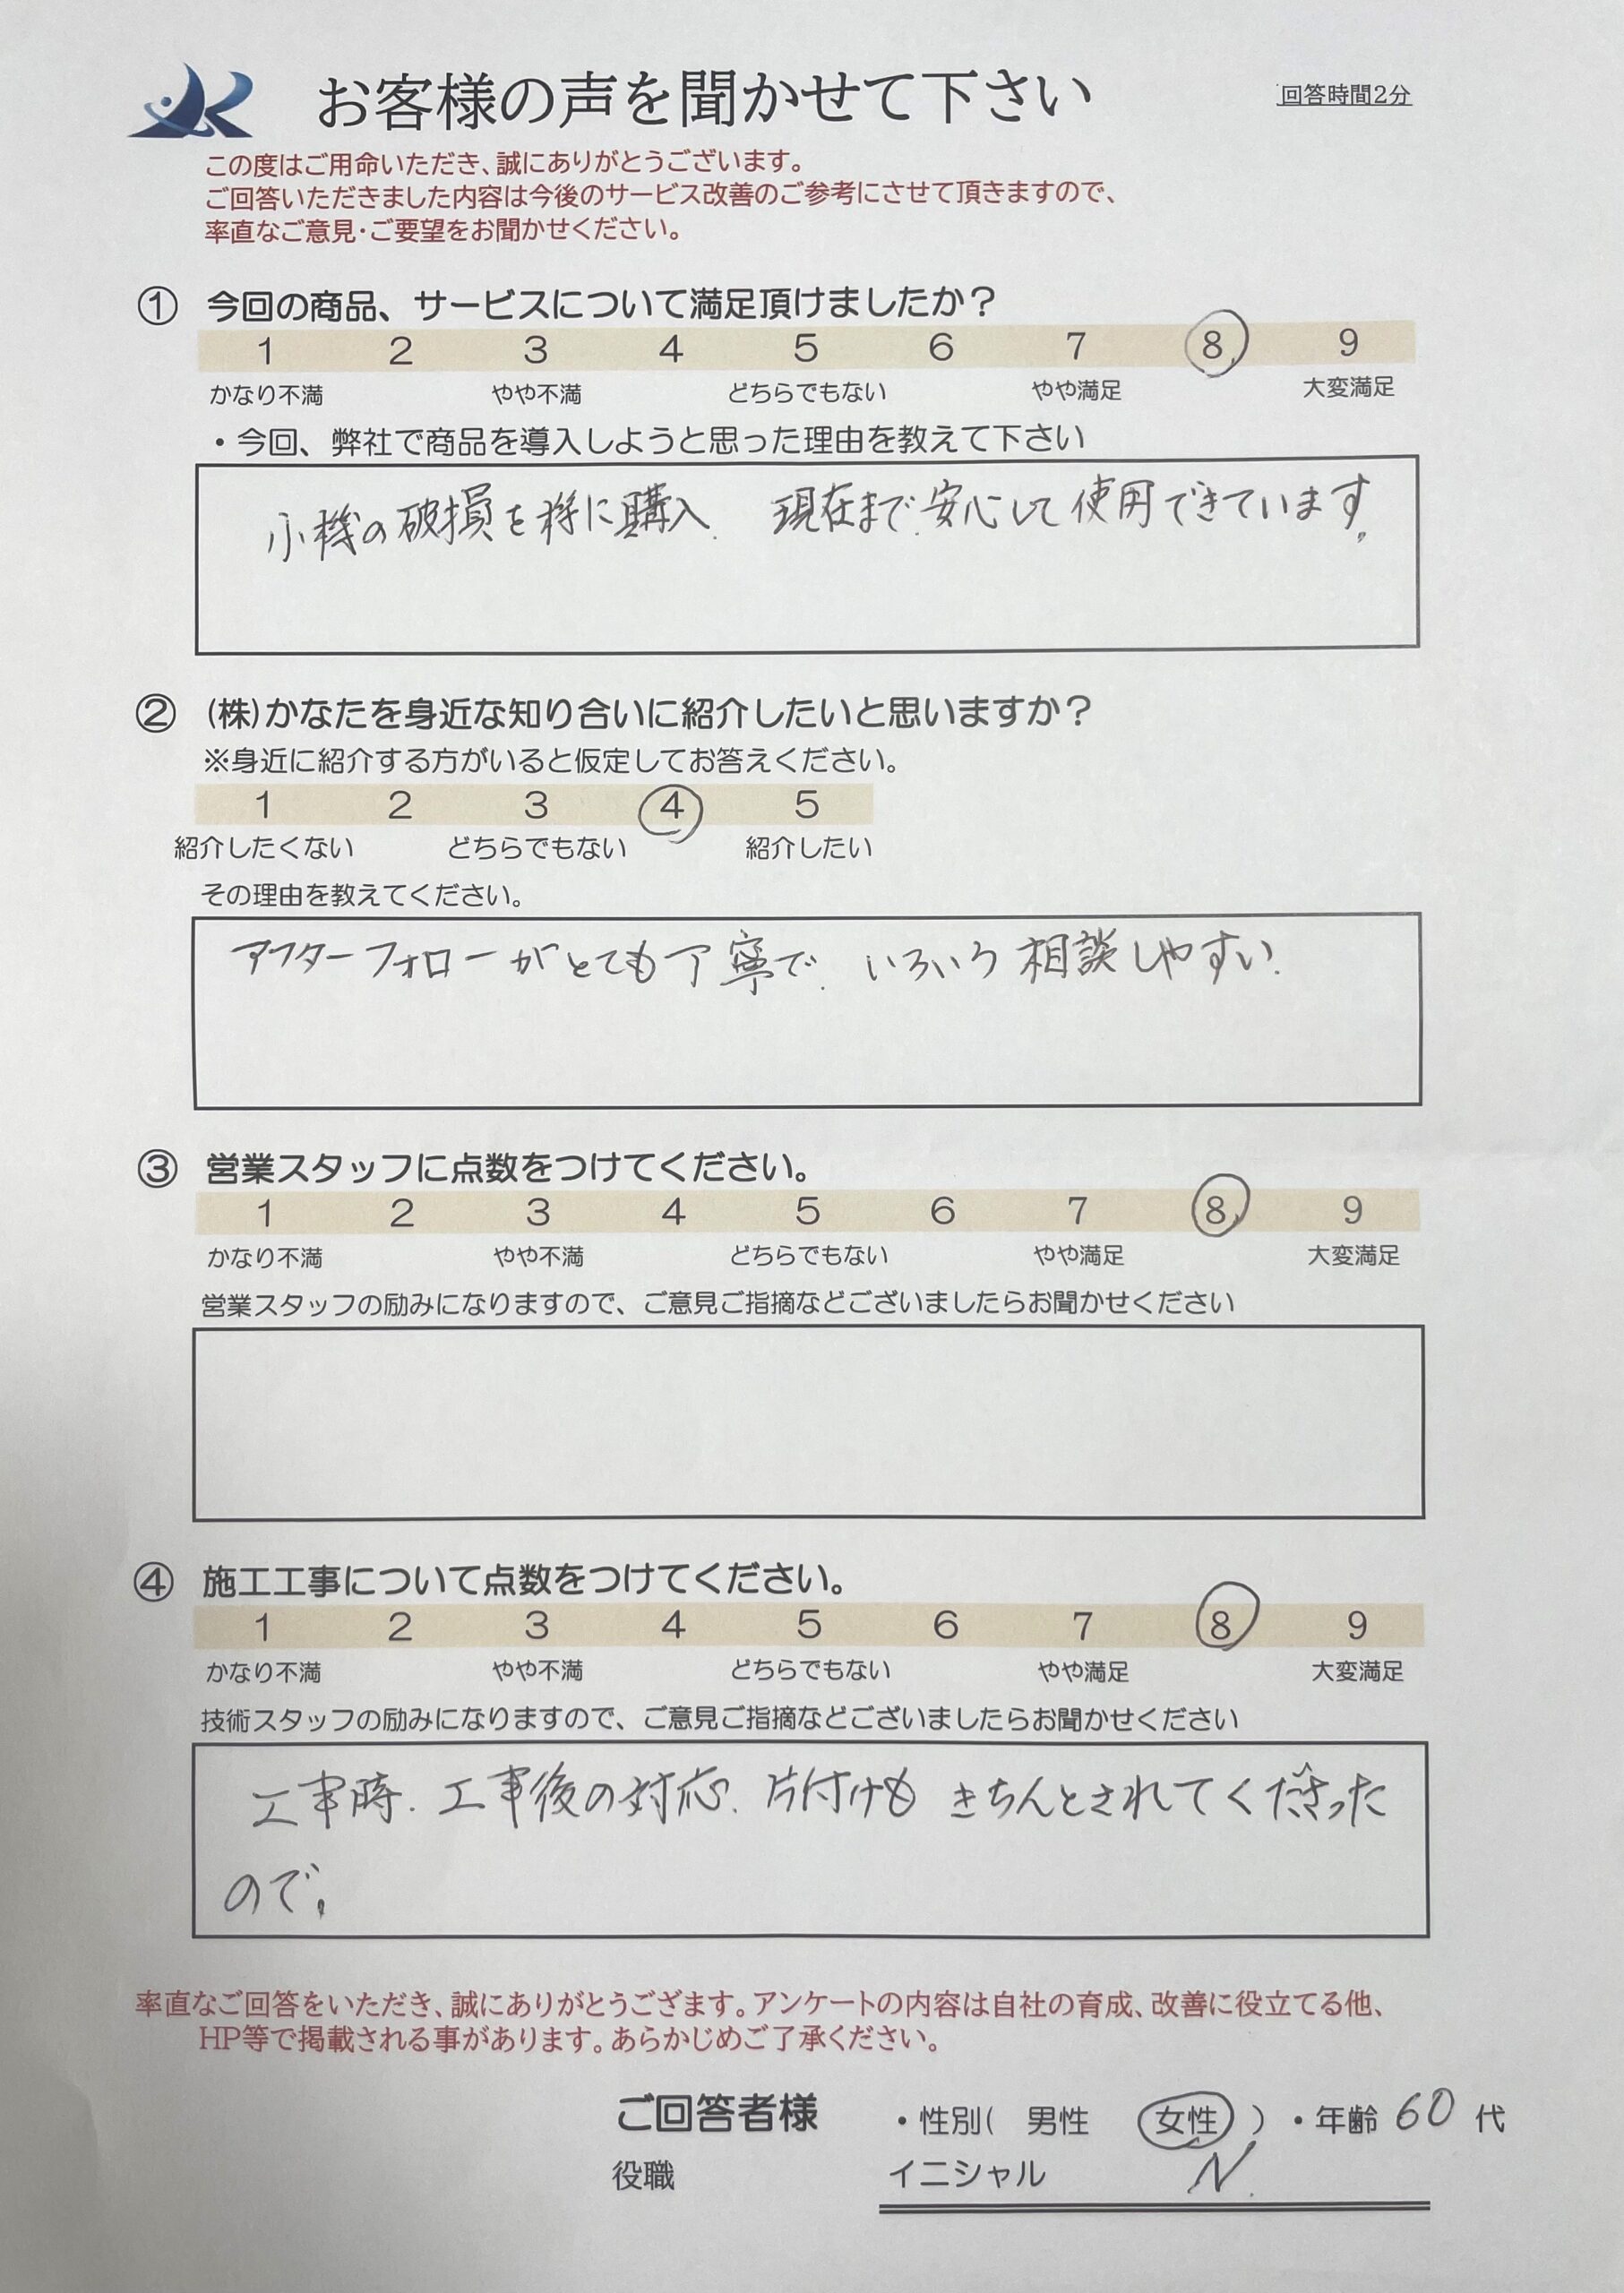 お客様の声を聞かせて下さい
回答時間2分
この度はご用命いただき、誠にありがとうございます。
ご回答いただきました内容は今後のサービス改善のご参考にさせて頂きますので、
率直なご意見・ご要望をお聞かせください。
① 今回の商品、サービスについて満足頂けましたか？
1 2 3 4 5 6 7 8 9
かなり不満 やや不満 どちらでもない やや満足 大変満足
・今回、弊社で商品を導入しようと思った理由を教えて下さい
機の破損を に購入. 現在まで.安心して使用できています。
② (株)かなたを身近な知り合いに紹介したいと思いますか？
※身近に紹介する方がいると仮定してお答えください。
1 2 3 4 5
紹介したくない どちらでもない 紹介したい
その理由を教えてください。
アフターフォローがとても丁寧で. いろいろ相談しやすい.
③ 営業スタッフに点数をつけてください。
1 2 3 4 5 6 7 8 9
かなり不満 やや不満 どちらでもない やや満足 大変満足
営業スタッフの励みになりますので、ご意見ご指摘などございましたらお聞かせください
④ 施工工事について点数をつけてください。
1 2 3 4 5 6 7 8 9
かなり不満 やや不満 どちらでもない やや満足 大変満足
技術スタッフの励みになりますので、ご意見ご指摘などございましたらお聞かせください
工事時. 工事後の対応. 片付けも きちんとされてくださった
ので。
率直なご回答をいただき、誠にありがとうござます。アンケートの内容は自社の育成、改善に役立てる他、
HP等で掲載される事があります。あらかじめご了承ください。
ご回答者様 ・性別( 男性 女性 ) ・年齢 60 代
役職 イニシャル N.